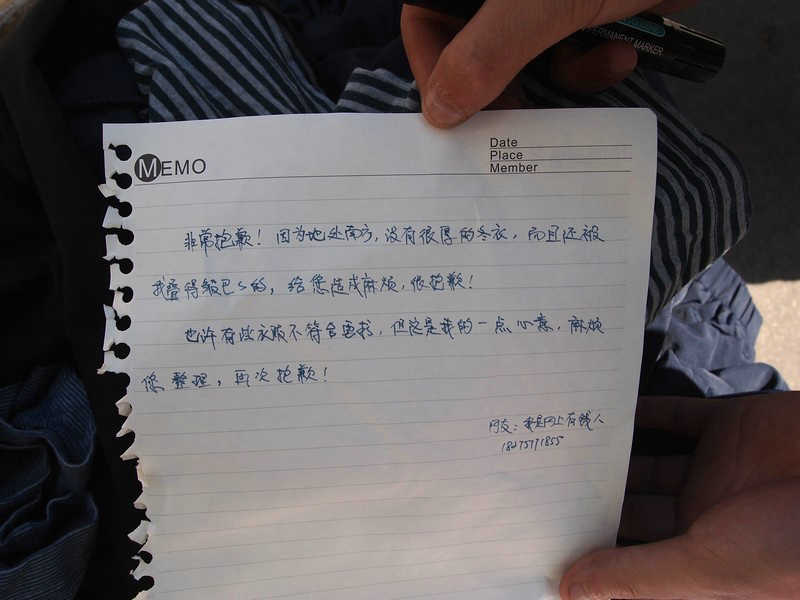 PERMANENT MARKER
MEMO
Date
Place
Member
非常抱歉！因为地处南方，没有很厚的冬衣，而且还被
我叠得皱巴巴的，给您造成麻烦，很抱歉！
也许有些衣服不符合要求，但这是我的一点心意，麻烦
您整理，再次抱歉！
网友：我是网上有钱人